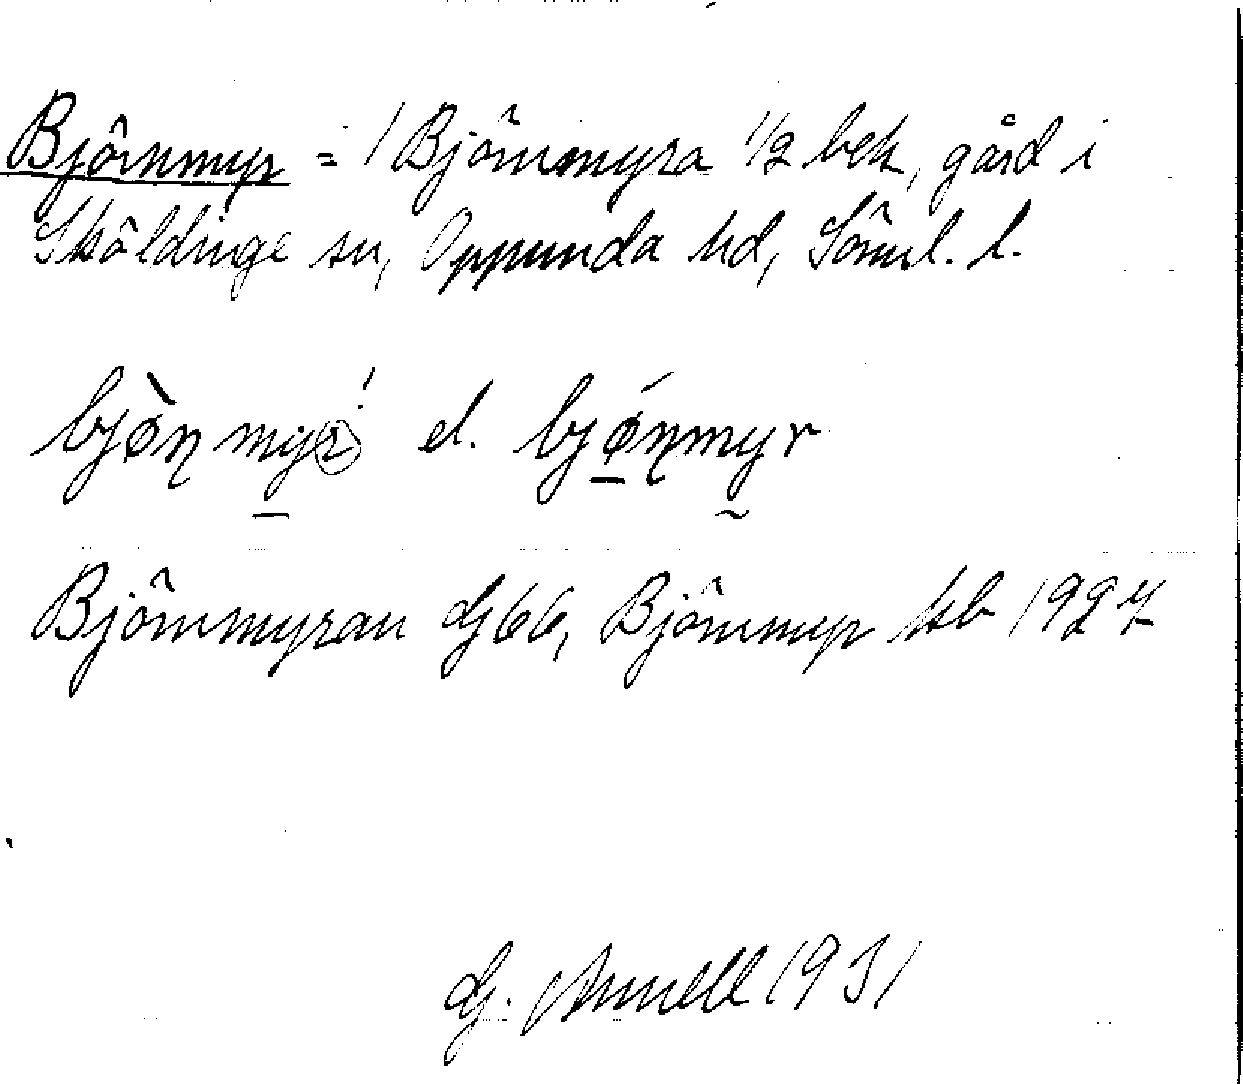 Björnmyr = 1 Björnmyra 1/2 bek, gård i
Sköldinge sn, Oppunda hd, Sörml. l.
bjø̀ṇmyŕ el. bjǿṇmyr
Björnmyran G66, Björnmyr kb 1927
G. Annell 1931